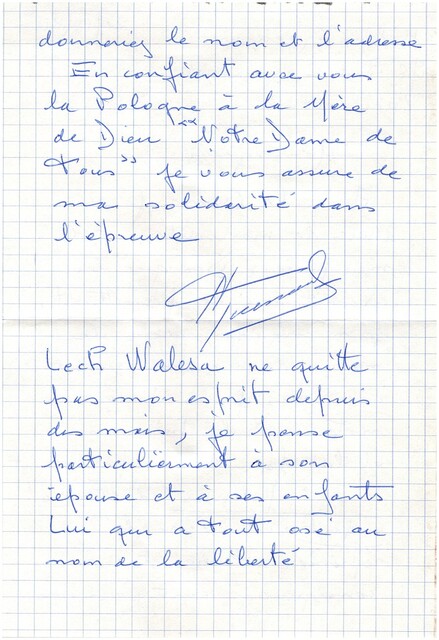 donneriez le nom et l'adresse
En confiant avec vous
la Pologne à la Mère
de Dieu "Notre Dame de
tous" je vous assure de
ma solidarité dans
l'épreuve
Lech Walesa ne quitte
pas mon esprit depuis
des mois, je pense
particulièrment à son
épouse et à ses enfants
Lui qui a tout osé au
nom de la liberté